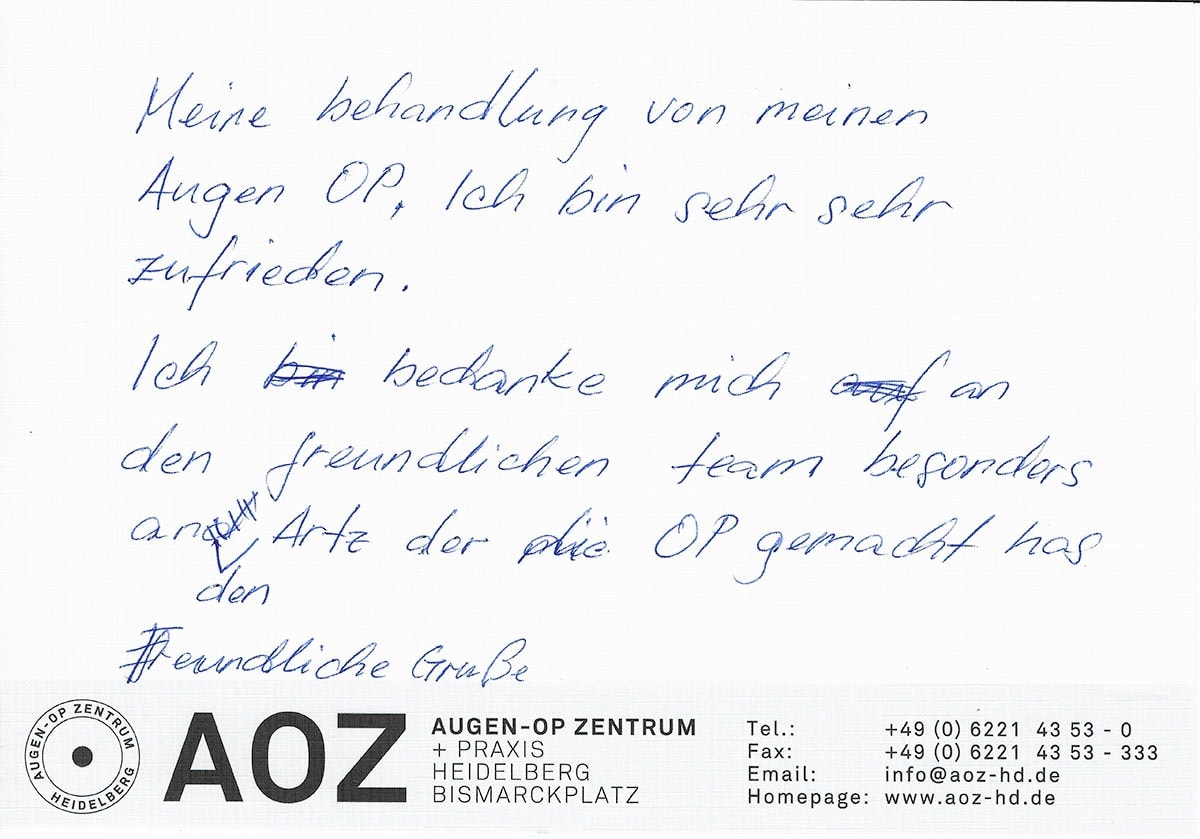 Meine behandlung von meinen
Augen OP. Ich bin sehr sehr
zufrieden.
Ich bin bedanke mich auf an
den freundlichen team besonders
an Artz der die OP gemacht has
den
Freundliche Gruße
AUGEN-OP ZENTRUM HEIDELBERG
AOZ
AUGEN-OP ZENTRUM
+ PRAXIS
HEIDELBERG
BISMARCKPLATZ
Tel.: +49 (0) 6221 43 53 - 0
Fax: +49 (0) 6221 43 53 - 333
Email: info@aoz-hd.de
Homepage: www.aoz-hd.de